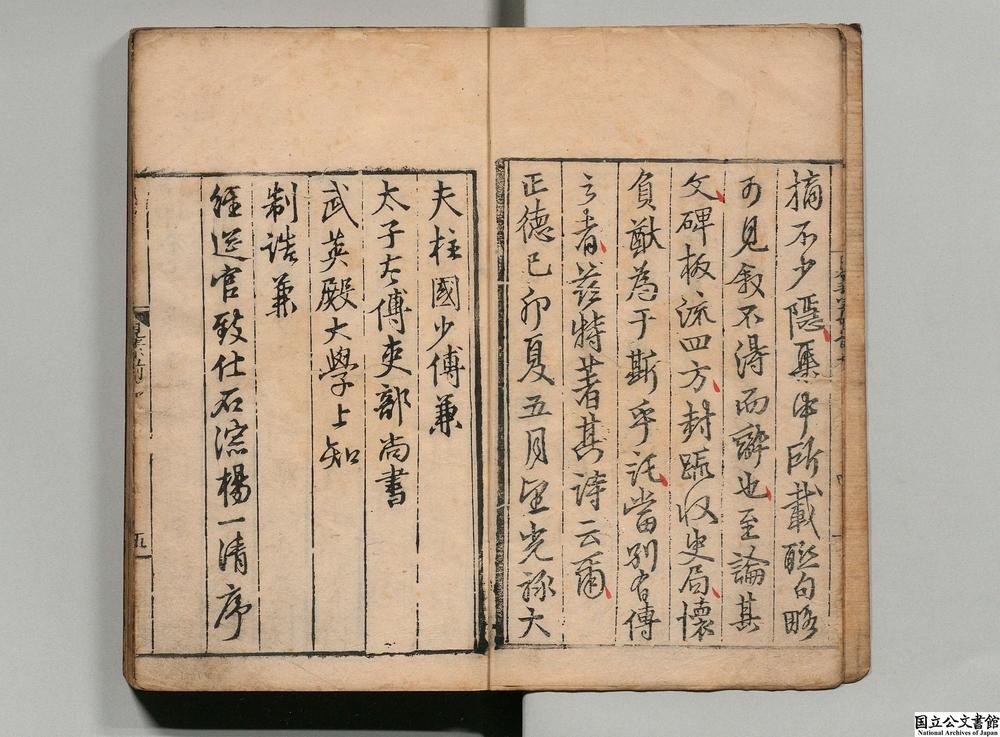 摘不少隱集中所載聯句略
可見叙不得而辭也至論其
文碑板流四方封疏收史局懷
負猷為于斯乎託當別有傳
之者茲特著其詩云爾
正德己卯夏五月望光祿大
夫柱國少傅兼
太子太傅吏部尚書
武英殿大學士知
制誥兼
經筵官致仕石淙楊一清序
五
国立公文書館
National Archives of Japan